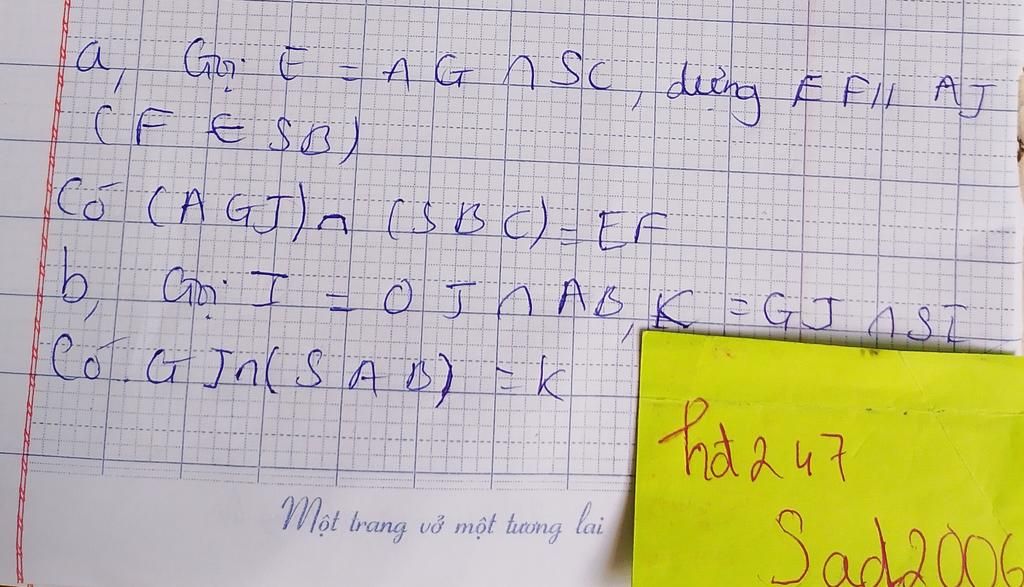 a, Gọi E = AG ∩ SC, dựng EF // AJ
(F ∈ SB)
Có (AGJ) ∩ (SBC) = EF
b, Gọi I = OJ ∩ AB, K = GJ ∩ SI
Có GJ ∩ (SAB) = K
hd247
Sad2006
Một trang vở một tương lai